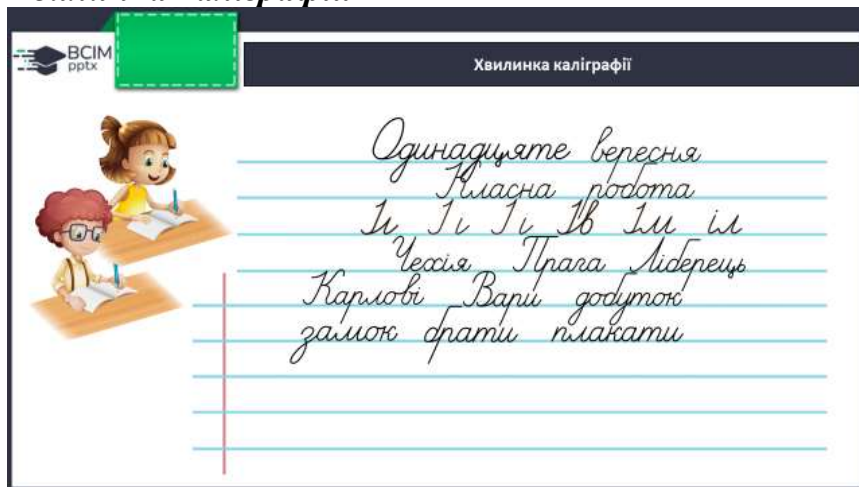 ВСІМ
pptx
Хвилинка каліграфії
Одинадцяте вересня
Класна робота
Іі Іі Іі Ів Ім іл
Чехія Прага Ліберець
Карлові Вари добуток
замок брати плакати